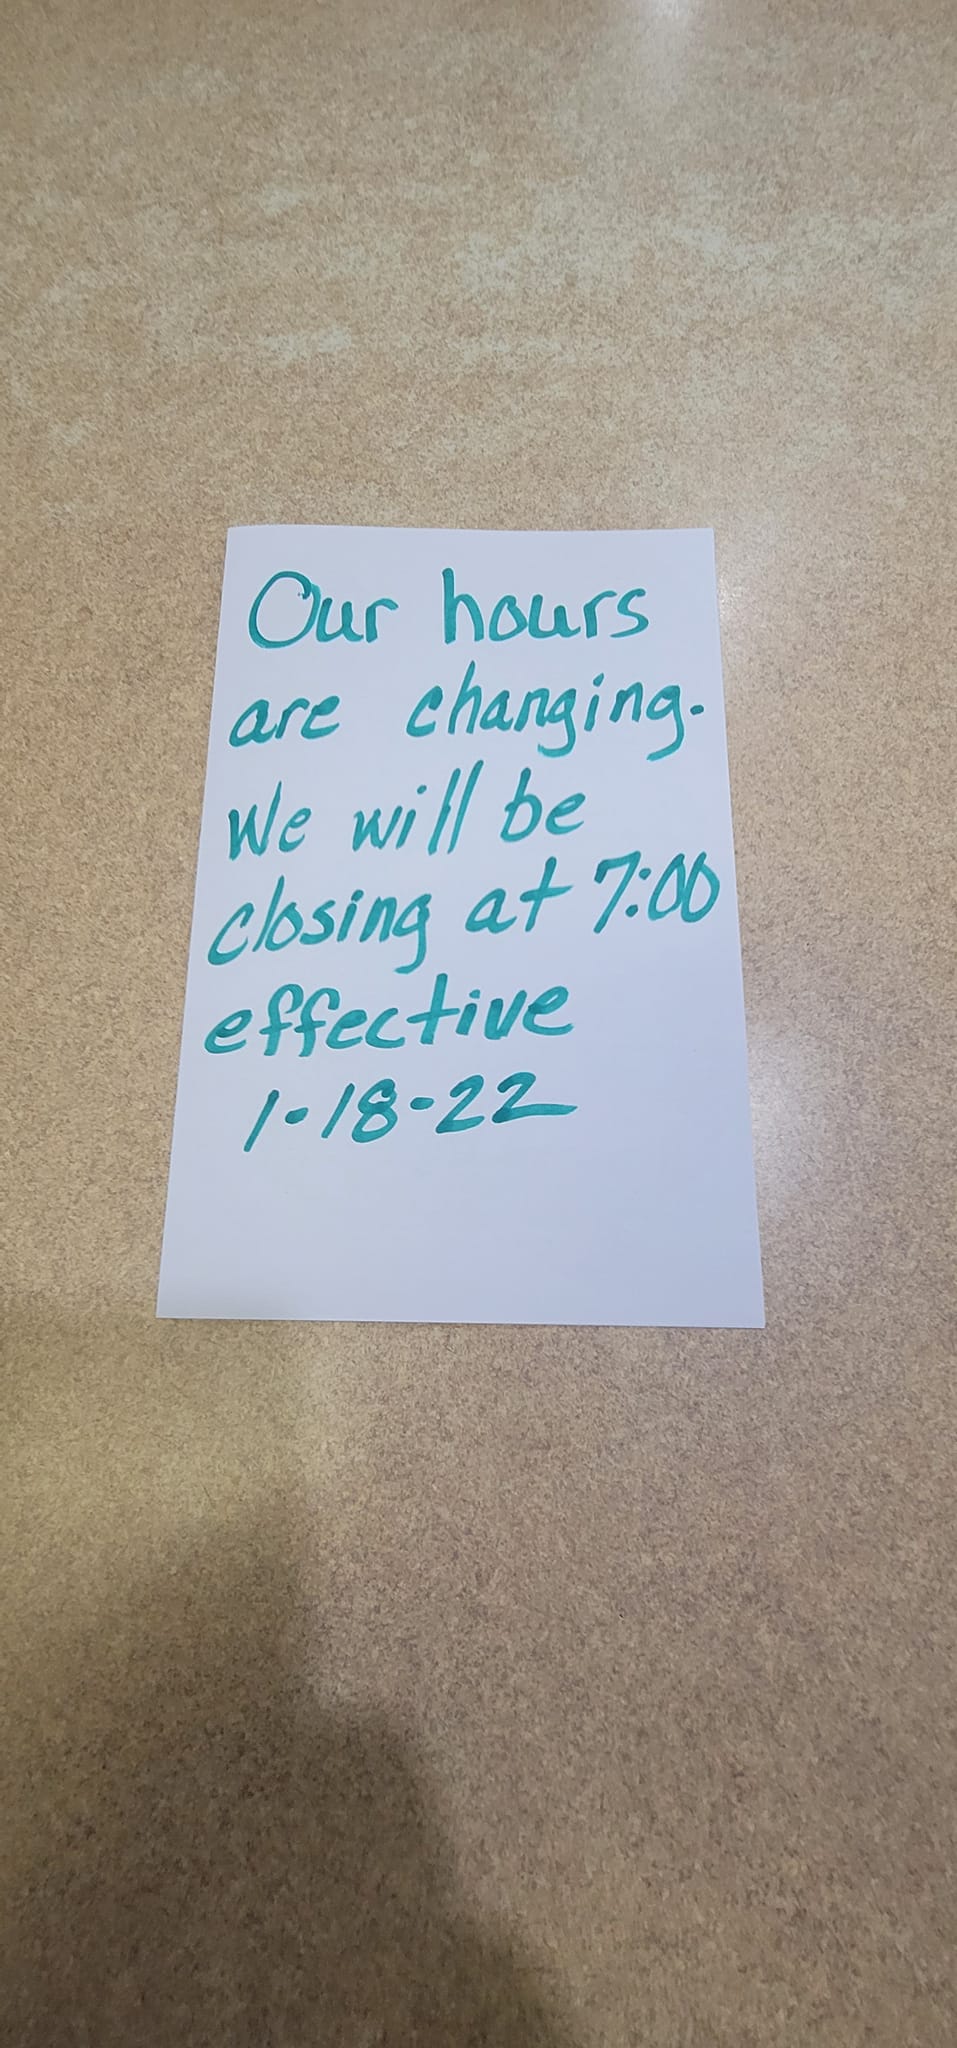 Our hours
are changing.
We will be
closing at 7:00
effective
1-18-22